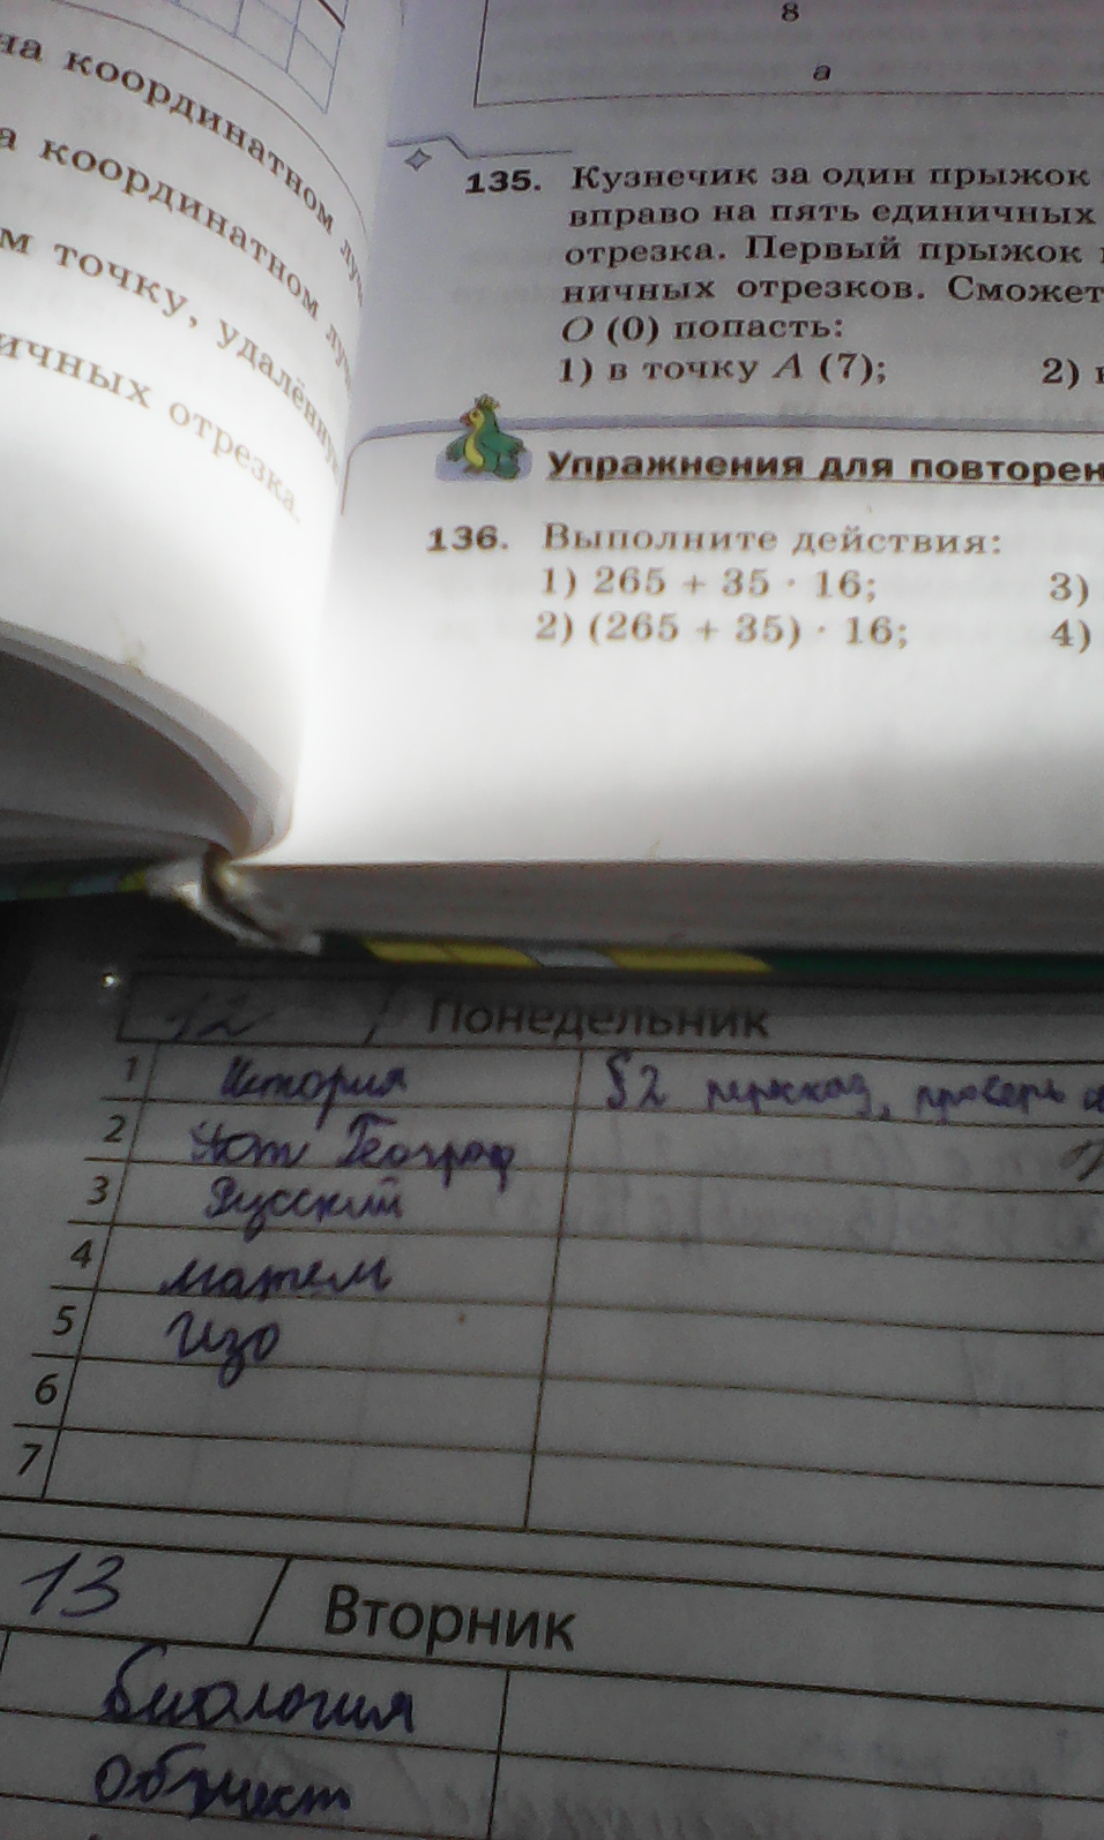 на координатном
а координатном
м точку, удалённую
ичных отрезка.
8
а
135. Кузнечик за один прыжок
вправо на пять единичных
отрезка. Первый прыжок
ничных отрезков. Сможет
О (0) попасть:
1) в точку А (7); 2)
Упражнения для повторен
136. Выполните действия:
1) 265 + 35 · 16; 3)
2) (265 + 35) · 16; 4)
12 Понедельник
1 История §2 пересказ,
2 Географ
3 Русский
4 матем
5 Изо
6
7
13 Вторник
биология
Общест